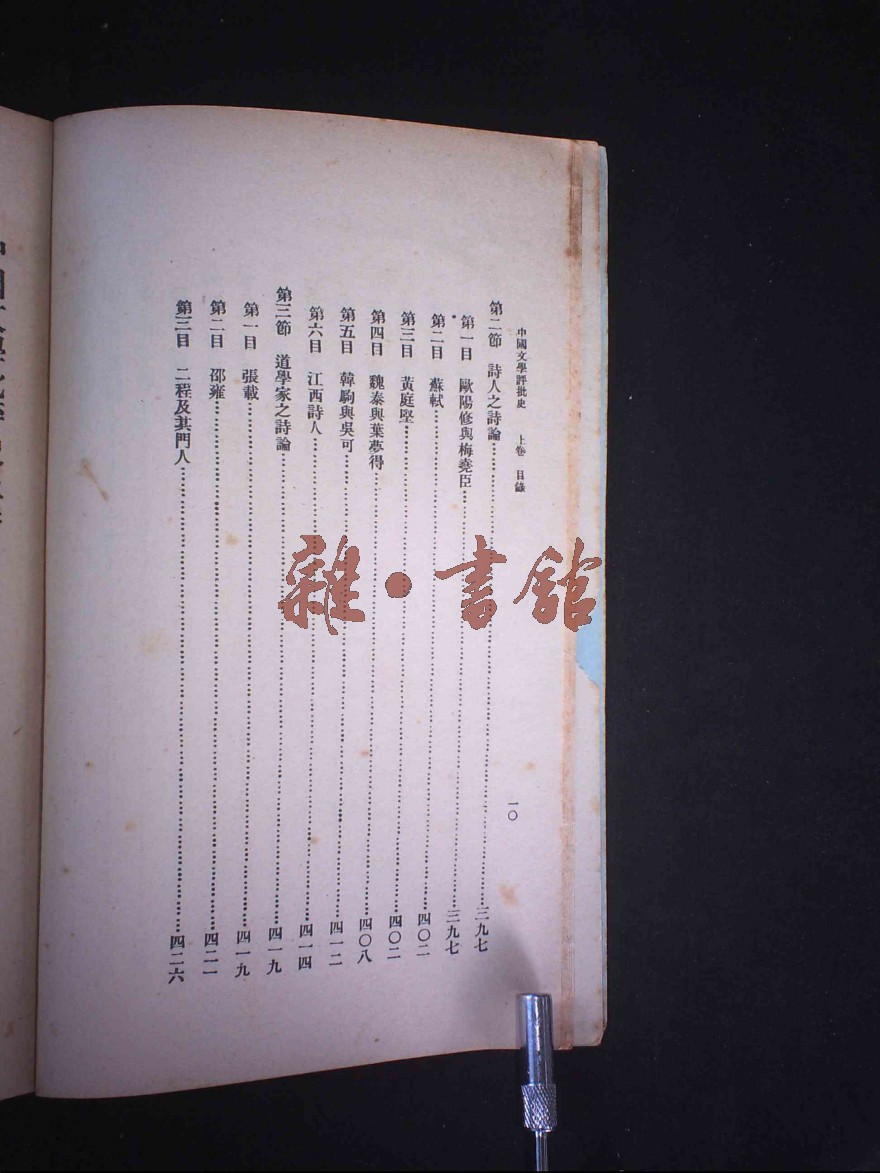 中國文學評批史　上卷　目錄　一〇
第二節　詩人之詩論……三九七
第一目　歐陽修與梅堯臣……三九七
第二目　蘇軾……四〇二
第三目　黃庭堅……四〇二
第四目　魏泰與葉夢得……四〇八
第五目　韓駒與吳可……四一二
第六目　江西詩人……四一四
第三節　道學家之詩論……四一九
第一目　張載……四一九
第二目　邵雍……四二一
第三目　二程及其門人……四二六
雜·書館